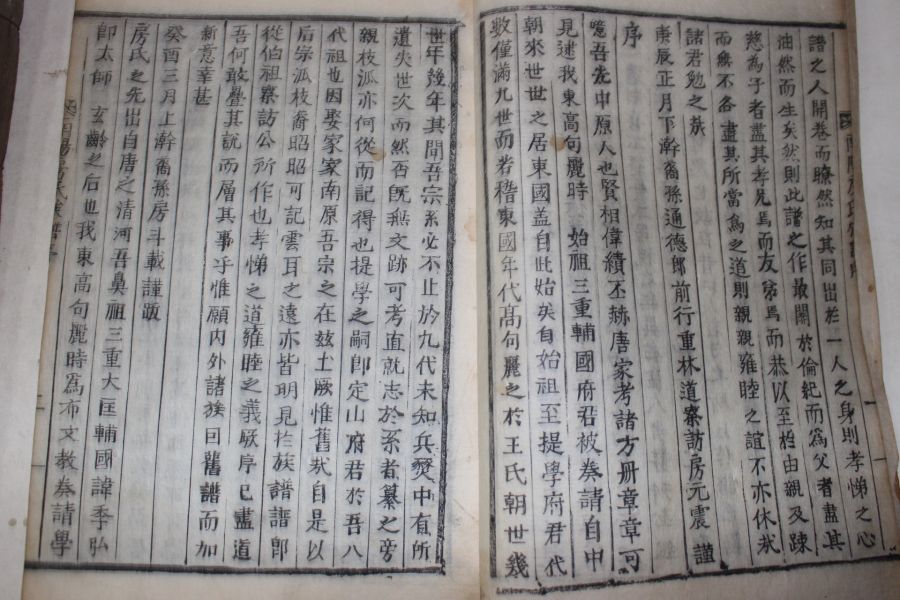 譜之人開卷而瞭然知其同出於一人之身則孝悌之心
油然而生矣然則此譜之作最關於倫紀而爲父者盡其
慈爲子者盡其孝兄焉而友弟焉而恭以至於由親及踈
而無不各盡其所當爲之道則親親雍睦之誼不亦休哉
諸君勉之哉
庚辰正月下澣裔孫通德郞前行重林道察訪房元震謹
序
噫吾先中原人也賢相偉績丕赫唐家考諸方册章章可
見逑我東高句麗時始祖三重輔國府君被奏請自中
朝來世世之居東國盖自此始矣自始祖至提學府君代
數僅滿九世而若稽東國年代高句麗之於王氏朝世幾
世年幾年其間吾宗系必不止於九代未知兵燹中有所
遺失世次而然否旣無文跡可考直就志於系者纂之旁
親枝泒亦何從而記得也提學之嗣卽定山府君於吾八
代祖也因娶家家南原吾宗之在玆土厥惟舊哉自是以
后宗泒枝裔昭昭可記雲耳之遠亦皆明見於族譜卽
從伯祖察訪公所作也孝悌之道雍睦之義厥序已盡道
吾何敢疊其說而層其事乎惟願內外諸族因舊譜而加
新意幸甚
癸酉三月上澣裔孫房斗載謹跋
房氏之先出自唐之淸河吾鼻祖三重大匡輔國諱季弘
卽太師玄齡之后也我東高句麗時爲布文敎奏請學